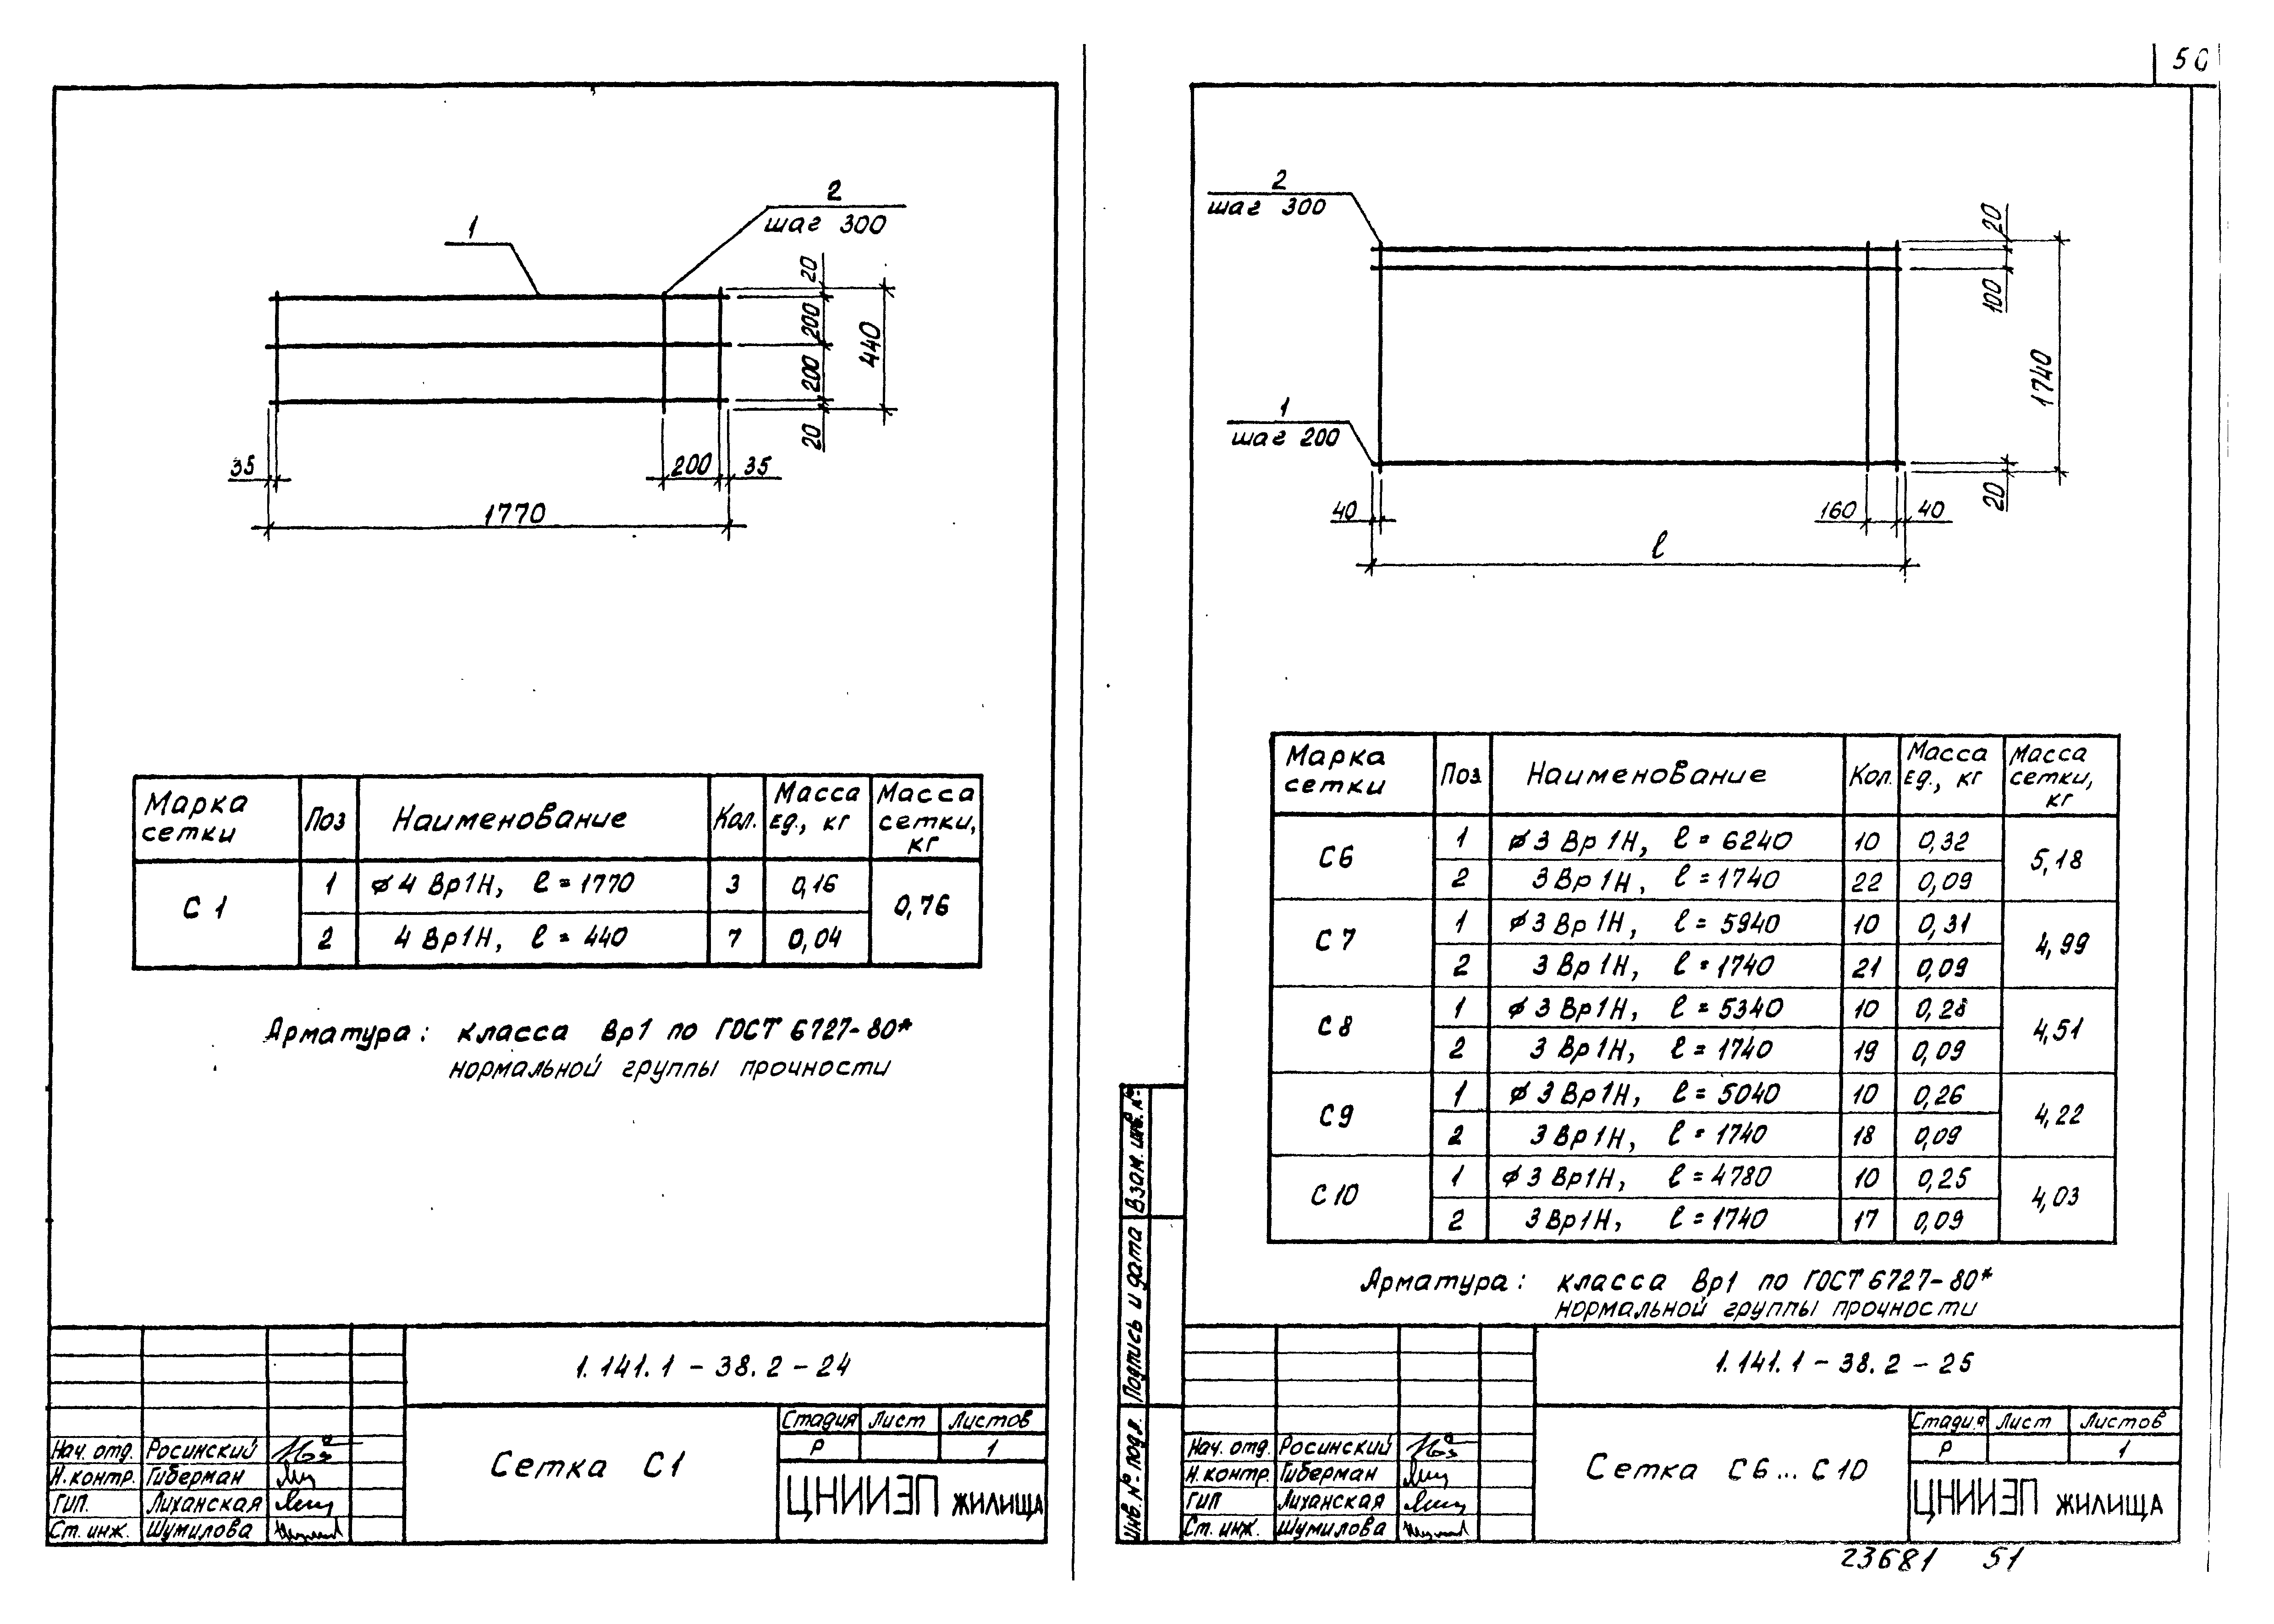 50
2
шаг 300
1
20
200
200
20
440
35
200
35
1770
Марка сетки
Поз
Наименование
Кол.
Масса ед., кг
Масса сетки, кг
С 1
1
ø 4 Вр1Н, ℓ = 1770
3
0,16
0,76
2
4 Вр1Н, ℓ = 440
7
0,04
Арматура: класса Вр1 по ГОСТ 6727-80*
нормальной группы прочности
1.141.1 - 38.2 - 24
Сетка С1
Стадия Лист Листов
Р 1
ЦНИИЭП жилища
Нач. отд. Росинский
Н.контр. Гиберман
ГИП. Лиханская
Ст. инж. Шумилова
2
шаг 300
1
шаг 200
20
100
1740
20
40
160
40
ℓ
Марка сетки
Поз
Наименование
Кол.
Масса ед., кг
Масса сетки, кг
С6
1
ø 3 Вр 1Н, ℓ = 6240
10
0,32
5,18
2
3 Вр 1Н, ℓ = 1740
22
0,09
С 7
1
ø 3 Вр 1Н, ℓ = 5940
10
0,31
4,99
2
3 Вр 1Н, ℓ = 1740
21
0,09
С 8
1
ø 3 Вр1Н, ℓ = 5340
10
0,28
4,51
2
3 Вр 1Н, ℓ = 1740
19
0,09
С9
1
ø 3 Вр1Н, ℓ = 5040
10
0,26
4,22
2
3 Вр 1Н, ℓ = 1740
18
0,09
С 10
1
ø 3 Вр1Н, ℓ = 4780
10
0,25
4,03
2
3 Вр1Н, ℓ = 1740
17
0,09
Арматура: класса Вр1 по ГОСТ 6727-80*
нормальной группы прочности
Взам. инв. №
Подпись и дата
Инв. № подл.
1.141.1 - 38.2 - 25
Сетка С6...С10
Стадия Лист Листов
Р 1
ЦНИИЭП жилища
Нач. отд. Росинский
Н.контр. Гиберман
ГИП Лиханская
Ст. инж. Шумилова
23681 51